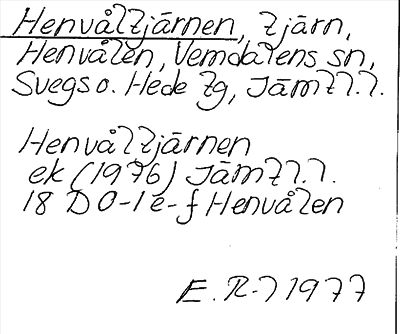 Henvåltjärnen, tjärn,
Henvålen, Vemdalens sn,
Svegs o. Hede tg, Jämtl.l.
Henvåltjärnen
ek (1976) Jämtl.l.
18 D 0-1 e-f Henvålen
E.R-l 1977